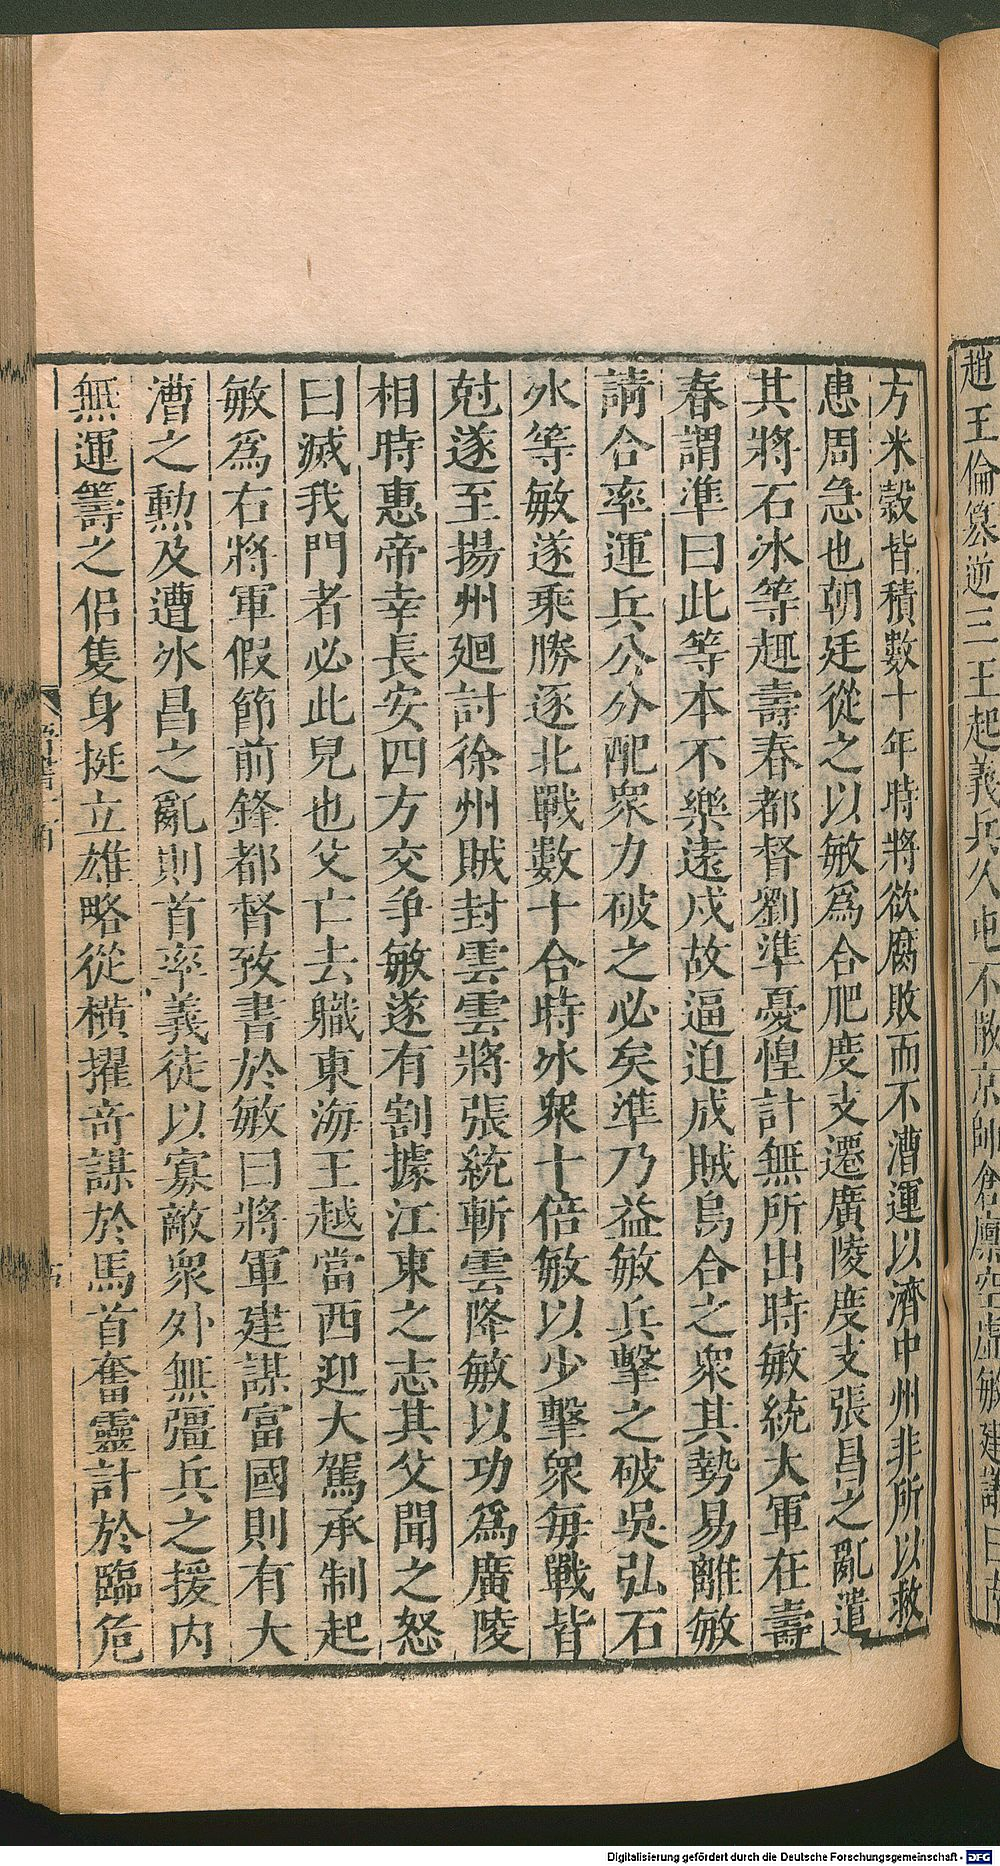 趙王倫篡逆三王起義兵久屯不散京師倉廩空虛敏建議曰
方米穀皆積數十年時將欲腐敗而不漕運以濟中州非所以救
患周急也朝廷從之以敏爲合肥度支遷廣陵度支張昌之亂遣
其將石冰等趣壽春都督劉準憂惶計無所出時敏統大軍在壽
春謂準曰此等本不樂遠戍故逼迫成賊烏合之衆其勢易離敏
請合率運兵公分配衆力破之必矣準乃益敏兵擊之破吳弘石
冰等敏遂乘勝逐北戰數十合時冰衆十倍敏以少擊衆每戰皆
尅遂至揚州廻討徐州賊封雲雲將張統斬雲降敏以功爲廣陵
相時惠帝幸長安四方交爭敏遂有割據江東之志其父聞之怒
曰滅我門者必此兒也父亡去職東海王越當西迎大駕承制起
敏爲右將軍假節前鋒都督致書於敏曰將軍建謀富國則有大
漕之勲及遭冰昌之亂則首率義徒以寡敵衆外無彊兵之援内
無運籌之侶隻身挺立雄略從橫擢奇謀於馬首奮靈計於臨危
Digitalisierung gefördert durch die Deutsche Forschungsgemeinschaft - DFG